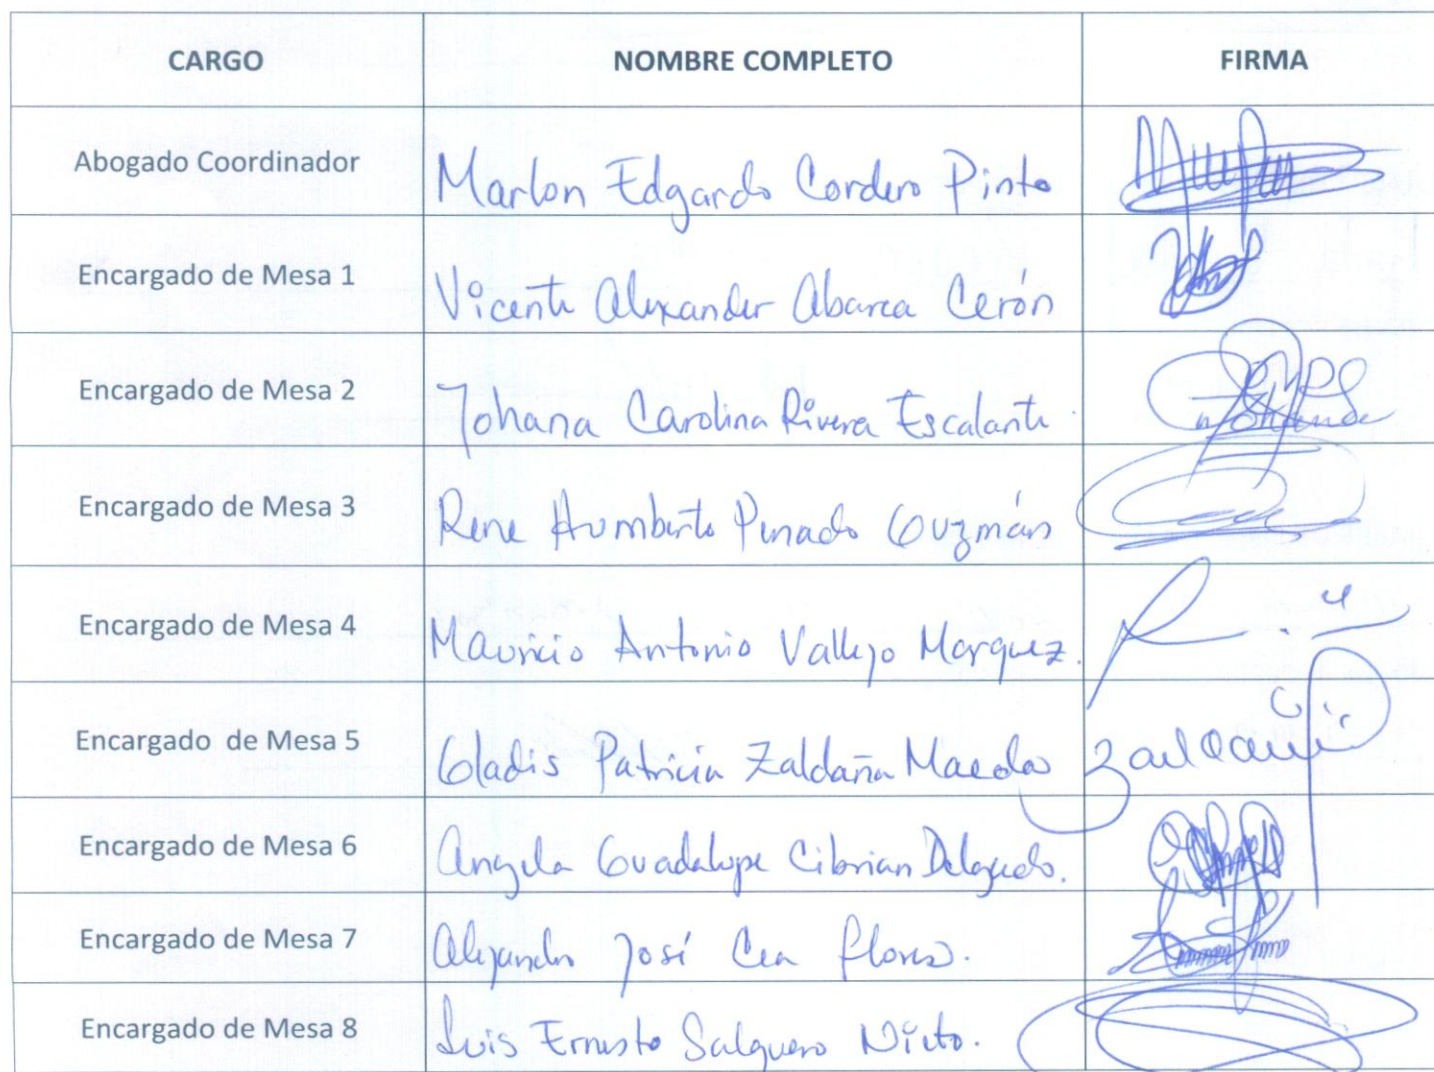 CARGO NOMBRE COMPLETO FIRMA
Abogado Coordinador Marlon Edgardo Cordero Pinto
Encargado de Mesa 1 Vicente Alexander Abarca Cerón
Encargado de Mesa 2 Johana Carolina Rivera Escalante Johana
Encargado de Mesa 3 Rene Humberto Penado Guzmán
Encargado de Mesa 4 Mauricio Antonio Vallejo Marquez.
Encargado de Mesa 5 Gladis Patricia Zaldaña
Encargado de Mesa 6 Angela Guadalupe Cibrian Delgado.
Encargado de Mesa 7 Alejandro José Cea Flores.
Encargado de Mesa 8 Luis Ernesto Salguero Nieto.